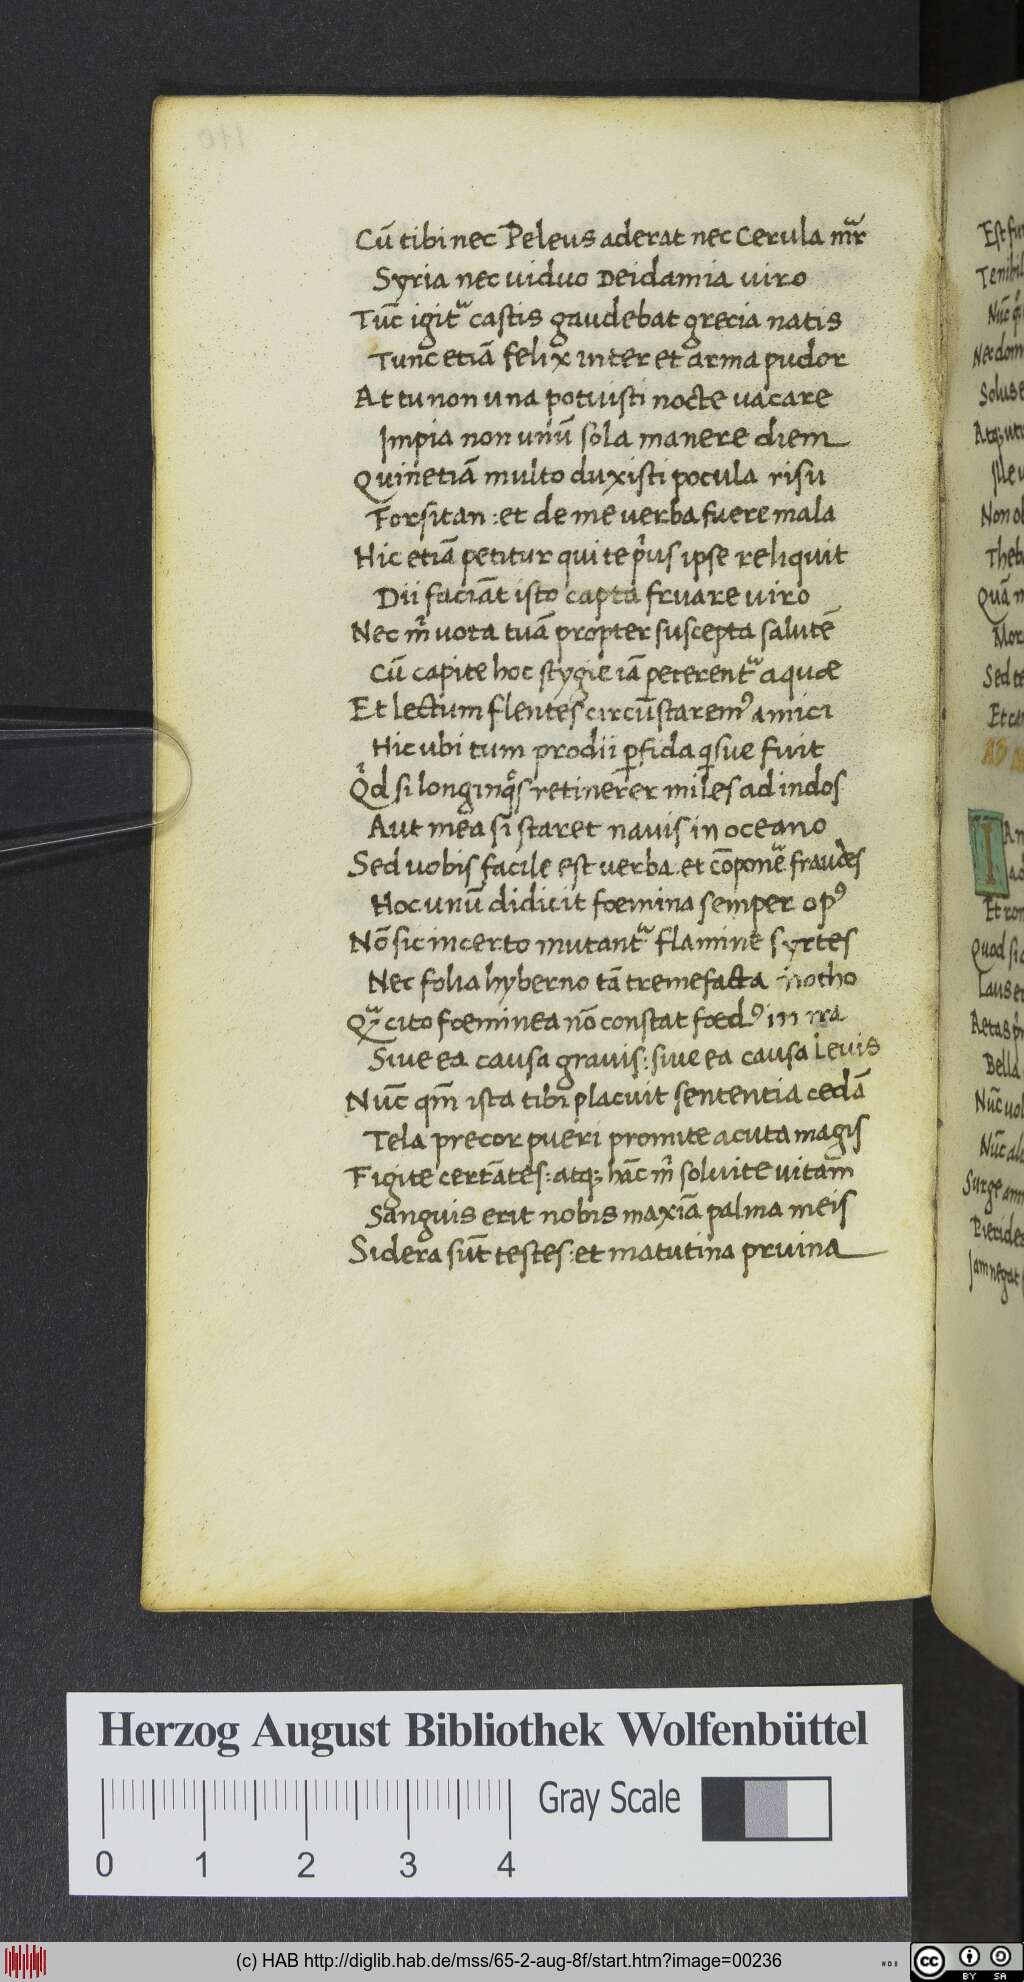 Cū tibi nec Peleus aderat nec cerula mr̄
Syria nec uiduo Deidamia uiro
Tuc̄ igitᵃ castis gaudebat grecia natis
Tunc etiā felix inter et arma pudor
At tu non una potuisti nocte uacare
Impia non unū sola manere diem
Quinetiā multo duxisti pocula risu
Forsitan : et de me uerba fuere mala
Hic etiā petitur qui te pͥus ipse reliquit
Dii faciāt isto capta fruare uiro
Nec m̄ uota tuā propter suscepta salutē
Cū capite hoc stygie iā peterentᵃ aquae
Et lectum flentes circūstaremꝰ amici
Hic ubi tum prodii ꝑfida qͥsue fuit
Qͥd si longinqͦs retinerēr miles ad indos
Aut mea si staret nauis in oceano
Sed uobis facile est uerba et cōponē fraudes
Hoc unū didicit foemina semper opꝰ
Nō sic incerto mutantᵃ flamine syrtes
Nec folia hyberno tā tremefacta notho
Qᵃꝫ cito foeminea nō constat foedꝰ in ira
Siue ea causa grauis : siue ea causa leuis
Nūc qm̄ ista tibi placuit sententia cedā
Tela precor pueri promite acuta magis
Figite certātes : atqꝫ hāc m̄ soluite uitam
Sanguis erit nobis maxiā palma meis
Sidera sūt testes : et matutina pruina
Est fu
Nūc
Nec dom
Solus e
Atqꝫ ut
Ille u
Non ol
Theb
Quā n
Mor
Sed te
Et ca
I
An
Et ron
Quod si
Laus e
Aetas
Bella
Nūc uol
Nūc al
Surge ani
Pierides
Iam negat
Herzog August Bibliothek Wolfenbüttel
Gray Scale
0 1 2 3 4
(c) HAB http://diglib.hab.de/mss/65-2-aug-8f/start.htm?image=00236
cc BY SA